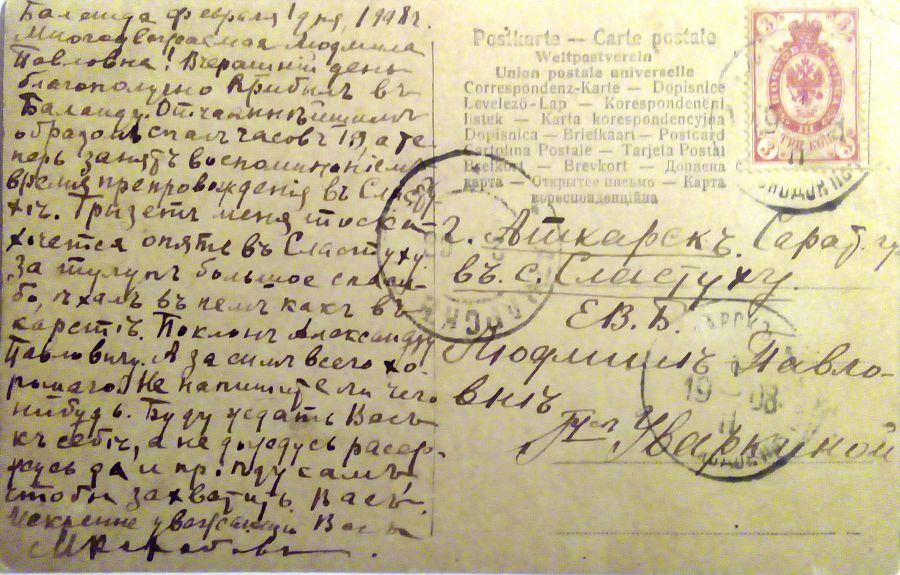 Баланда Февраля 1 дня, 1908 г.
Многоуважаемая Людмила
Павловна! Вчерашній день
благополучно прибылъ въ
Баланду. Отчаяннѣйшимъ
образомъ спалъ часовъ 18, а те
перь занятъ воспоминаніемъ
время препровожденія въ Сласту
хѣ. Грызетъ меня тоска
хочется опять въ Сластуху
за тулупъ большое спаси-
бо ѣхалъ въ немъ какъ въ
каретѣ. Поклонъ Александру
Павловичу. А за симъ всего хо
рошаго. Не напишите ли чего
нибудь. Буду ждать Васъ
къ себѣ, а не дождусь рассер-
жусь да и пріѣду самъ
чтобы захватить Васъ.
Искренне уважающій Васъ
Postkarte — Carte postale
Weltpostverein
Union postale universelle
Correspondenz-Karte — Dopisnice
Levelező-Lap — Korespondeneni
listek — Karta korespondencyjna
Dopisnica — Briefkaart — Postcard
Cartolina Postale — Tarjeta Postal
Brefkort — Brevkort — Дописна
карта — Открытое письмо — Карта
кореспонденційна
г. Аткарскъ. Сарат. гу
въ с. Сластуху.
Е.В.Б.
Людмилѣ Павло-
внѣ
Уваркиной
ПОЧТОВАЯ МАРКА
ТРИ КОП.
3 3
3 3
19 08
II